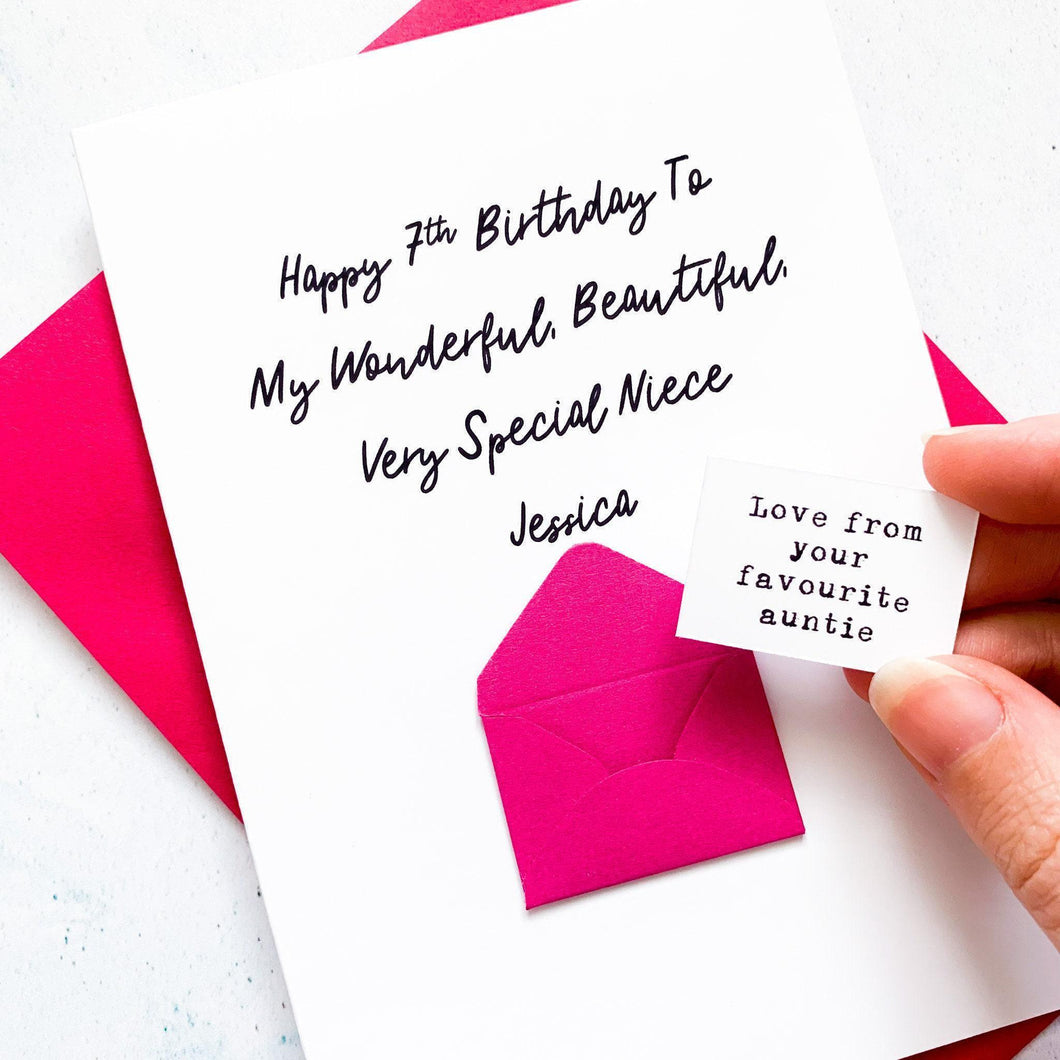 Happy 7th Birthday To
My Wonderful, Beautiful,
Very Special Niece
Jessica
Love from
your
favourite
auntie